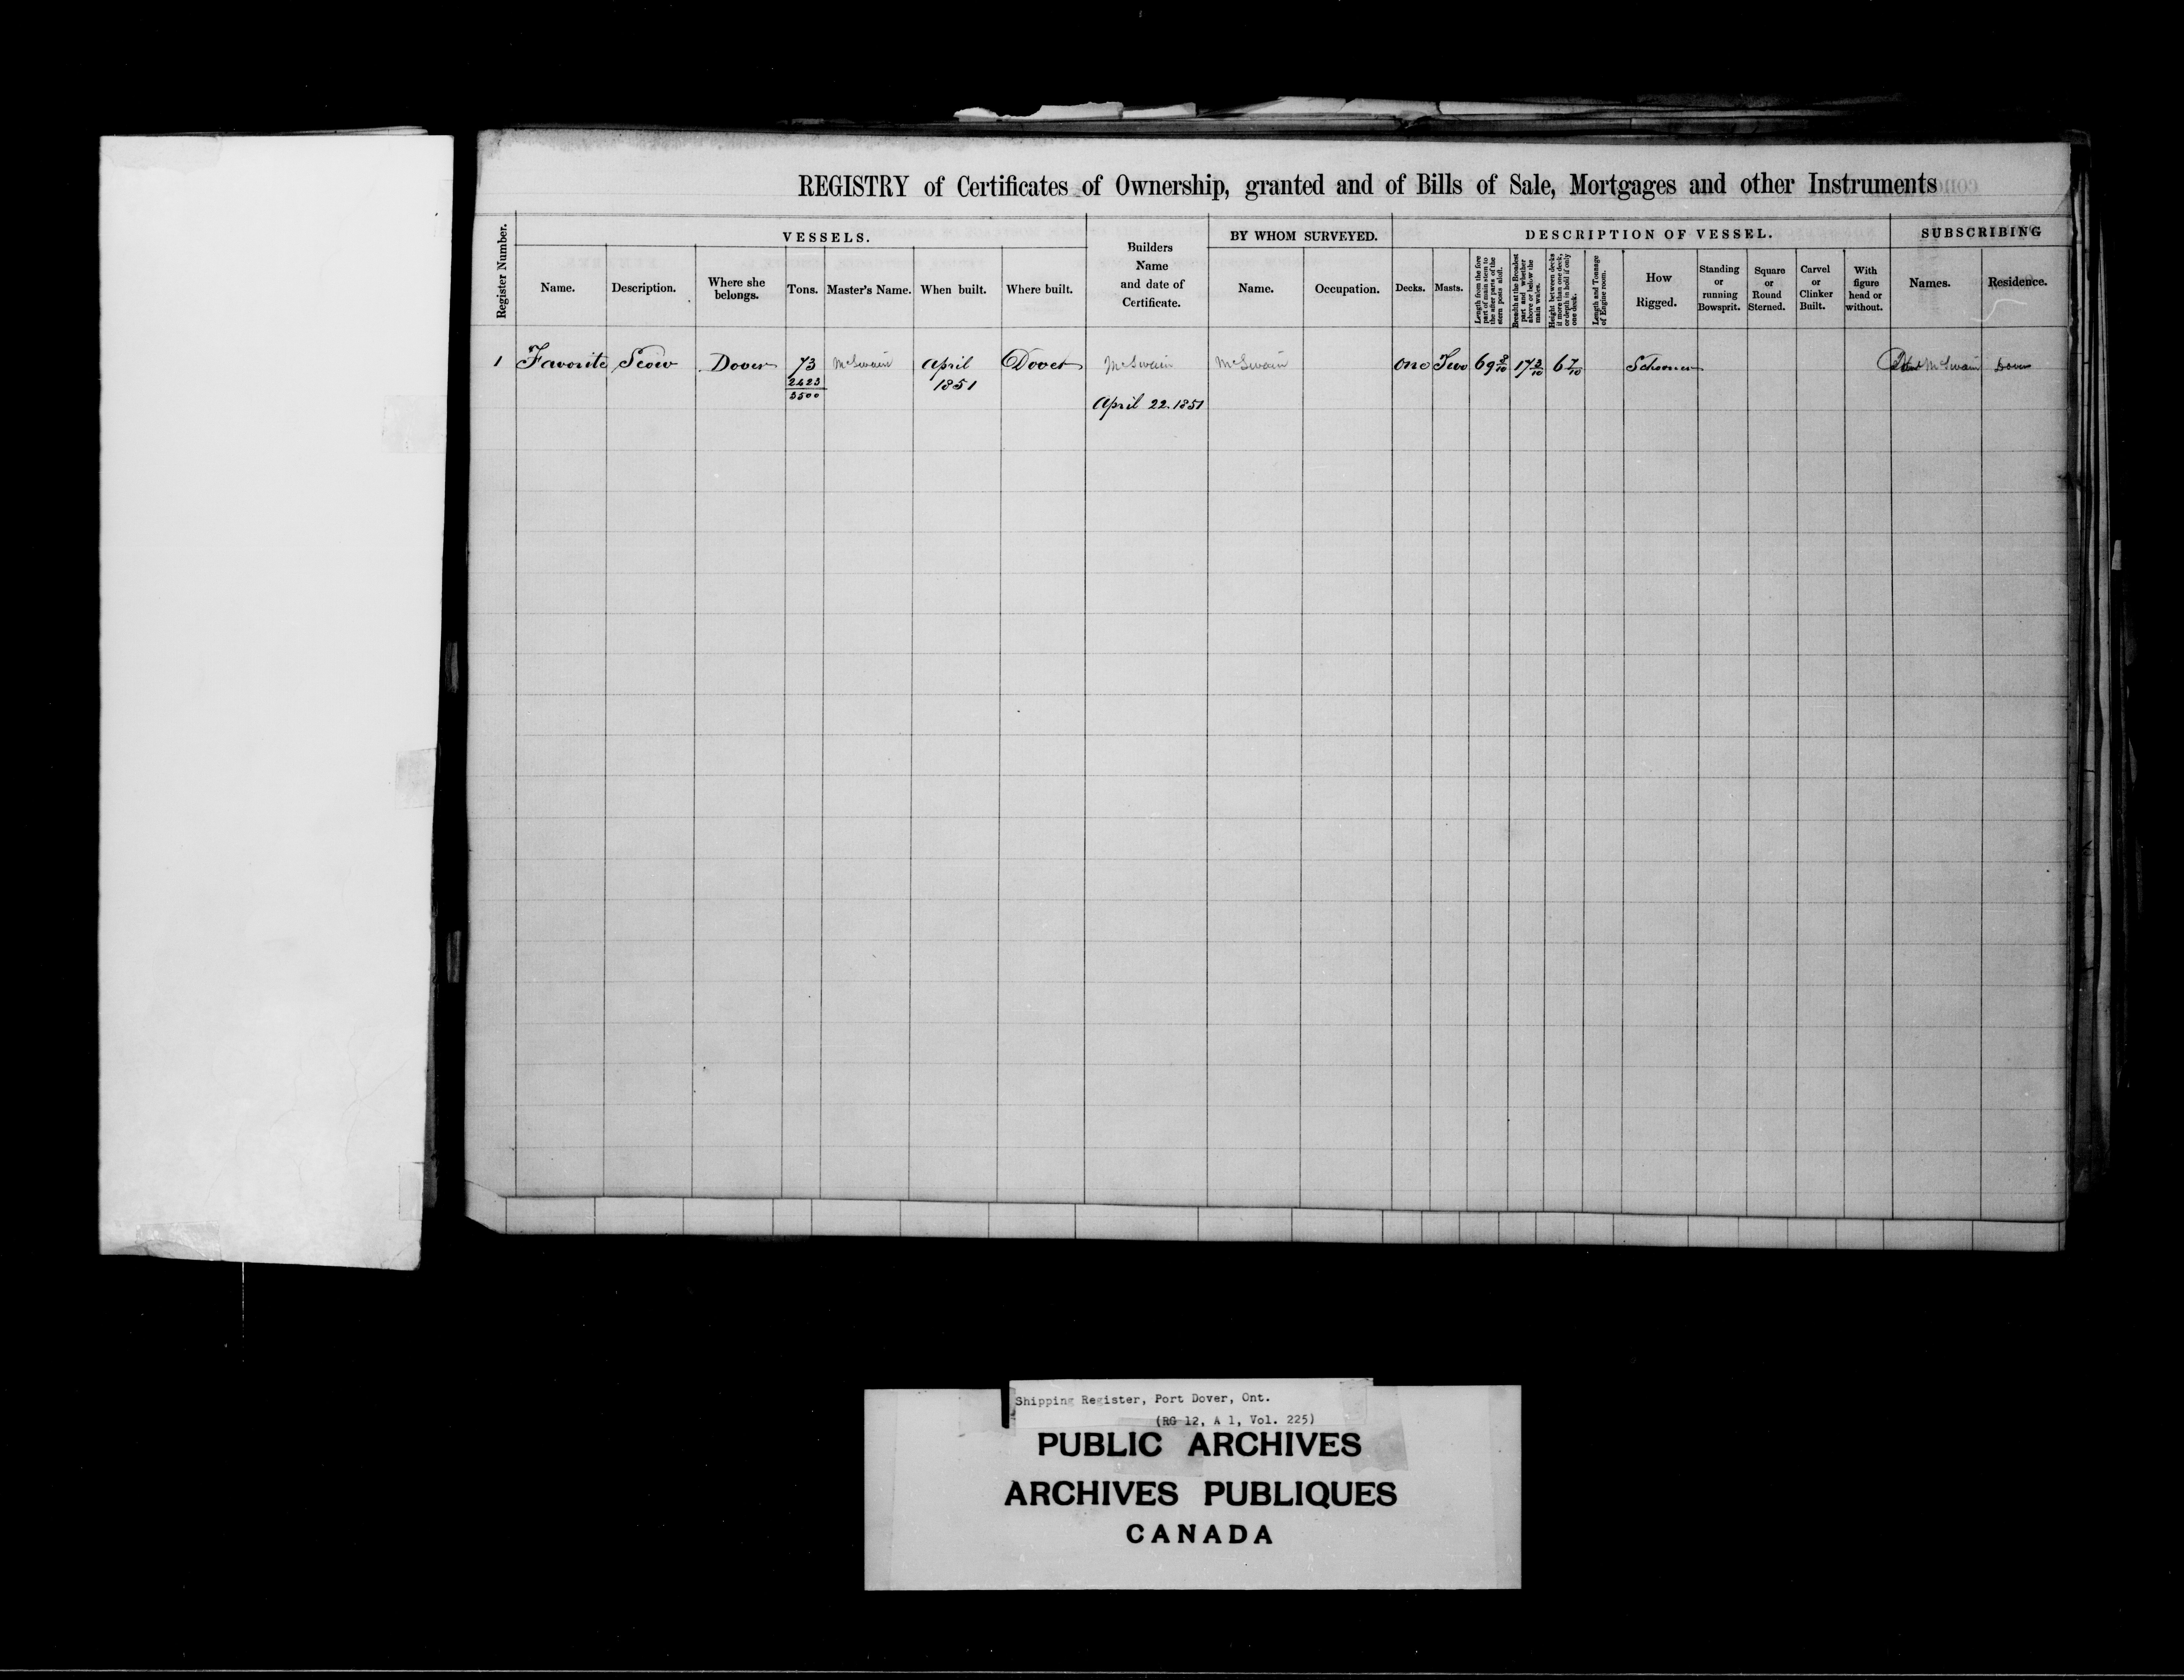 REGISTRY of Certificates of Ownership, granted and of Bills of Sale, Mortgages and other Instruments
Register Number.
VESSELS.
Name.
Description.
Where she
belongs.
Tons.
Master's Name.
When built.
Where built.
Builders
Name
and date of
Certificate.
BY WHOM SURVEYED.
Name.
Occupation.
DESCRIPTION OF VESSEL.
Decks.
Masts.
Length from the fore
part of main stem to
the after parts of the
stern posts aloft.
Breadth at the Broadest
part and whether
above or below the
main wales.
Height between decks
if more than one deck,
or depth in hold if only
one deck.
Length and Tonnage
of Engine room.
How
Rigged.
Standing
or
running
Bowsprit.
Square
or
Round
Sterned.
Carvel
or
Clinker
Built.
With
figure
head or
without.
SUBSCRIBING
Names.
Residence.
1 Favorite Scow Dover 73 McSwain April Dover McSwain McSwain One Two 69 17 6 7/10 Schooner McSwain Dover
2423 1851
3500
April 22. 1851
Shipping Register, Port Dover, Ont.
(RG 12, A 1, Vol. 225)
PUBLIC ARCHIVES
ARCHIVES PUBLIQUES
CANADA